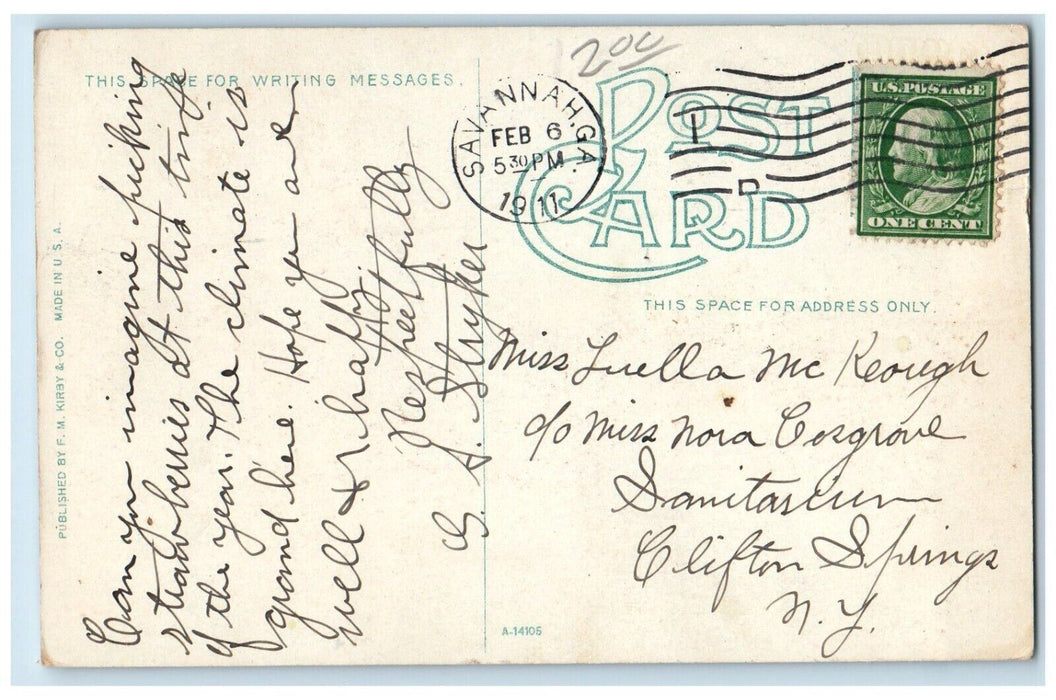 THIS SPACE FOR WRITING MESSAGES.
Can you imagine picking
strawberries at this time
of the year. The climate is
grand here. Hope you are
well & happy.
Respectfully
G. S. Stryker
PUBLISHED BY F. M. KIRBY & CO. MADE IN U.S.A.
A-14105
200
POST
CARD
SAVANNAH, GA.
FEB 6
530 PM
1911
D
U.S. POSTAGE
ONE CENT
THIS SPACE FOR ADDRESS ONLY.
Miss Luella Mc Keough
c/o Miss Nora Cosgrove
Sanitarium
Clifton Springs
N.Y.